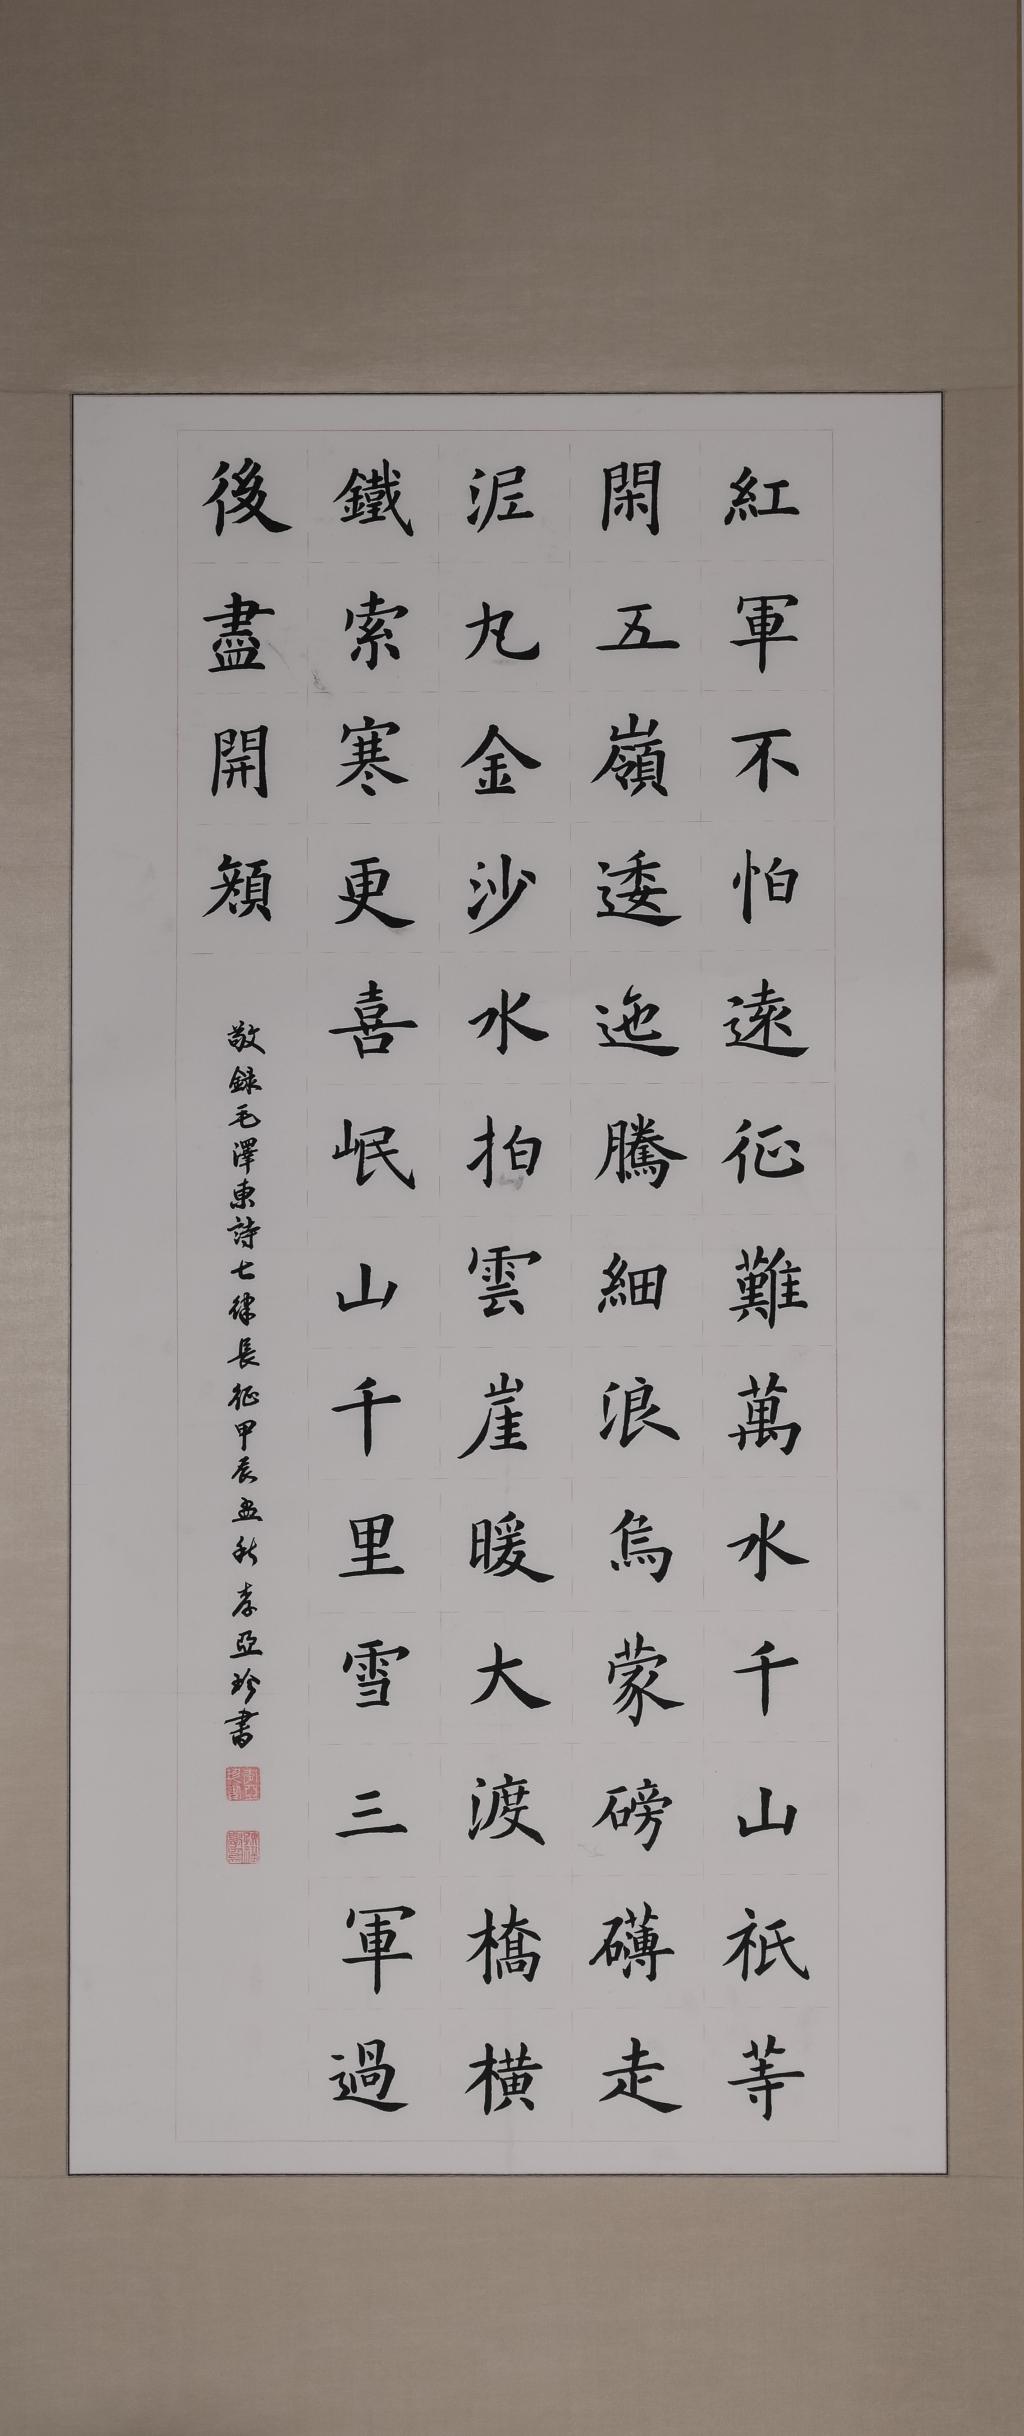 紅軍不怕遠征難萬水千山祇等
閑五嶺逶迤騰細浪烏蒙磅礴走
泥丸金沙水拍雲崖暖大渡橋橫
鐵索寒更喜岷山千里雪三軍過
後盡開顏
敬錄毛澤東詩七律長征甲辰孟秋李亞珍書